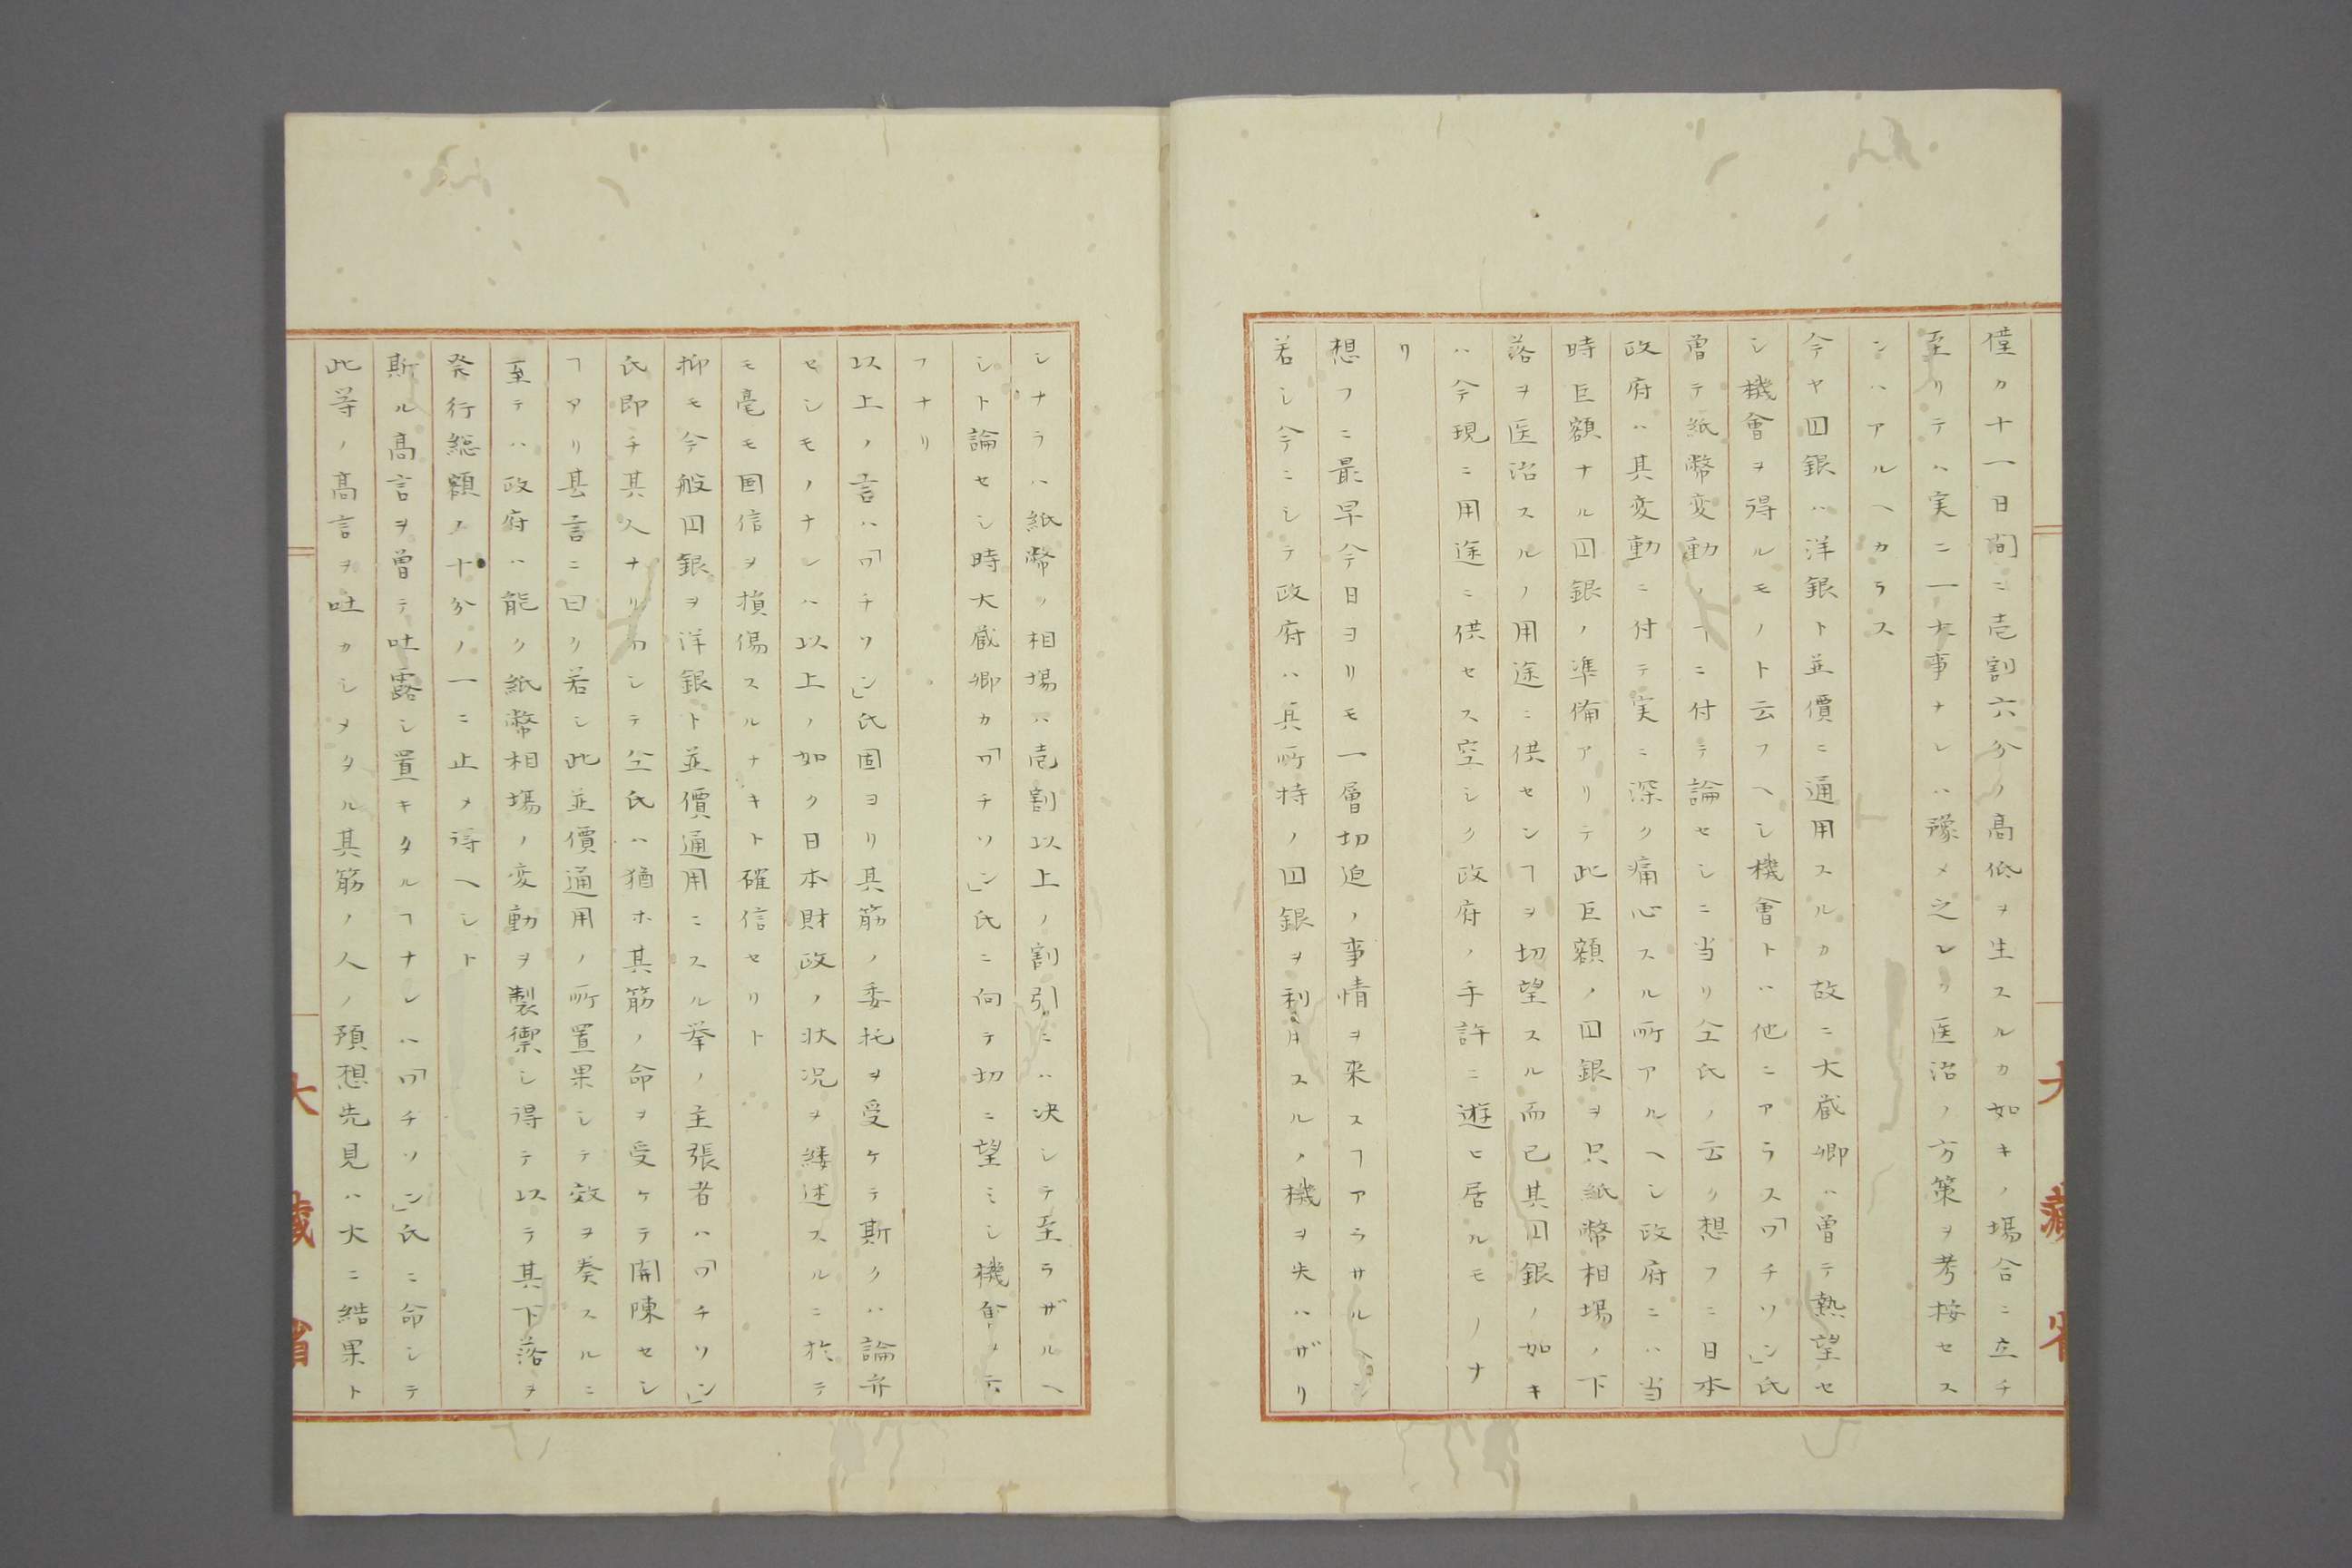 僅カ十一日間ニ壱割六分ノ高低ヲ生スルカ如キノ場合ニ立チ
至リテハ実ニ一大事ナレハ豫メ之レヲ医治ノ方策ヲ考按セス
ンハアルヘカラス
今ヤ円銀ハ洋銀ト並價ニ通用スルカ故ニ大蔵卿ハ曽テ熱望セ
シ機會ヲ得ルモノト云フヘシ機會トハ他ニアラス「ワチソン」氏
曽テ紙幣変動ノヿニ付テ論セシニ当リ仝氏ノ云ク想フニ日本
政府ハ其変動ニ付テ実ニ深ク痛心スル所アルヘシ政府ニハ当
時巨額ナル円銀ノ準備アリテ此巨額ノ円銀ヲ只紙幣相場ノ下
落ヲ医治スルノ用途ニ供センヿヲ切望スル而已其円銀ノ如キ
ハ今現ニ用途ニ供セス空シク政府ノ手許ニ遊ヒ居ルモノナ
リ
想フニ最早今日ヨリモ一層切迫ノ事情ヲ来スヿアラサルヘシ
若シ今ニシテ政府ハ其所持ノ円銀ヲ利用スルノ機ヲ失ハザリ
大藏省
シナラハ紙幣ノ相場ハ壱割以上ノ割引ニハ决シテ至ラザルヘ
シト論セシ時大蔵卿カ「ワチソン」氏ニ向テ切ニ望ミシ機會ノ云
フナリ
以上ノ言ハ「ワチソン」氏固ヨリ其筋ノ委托ヲ受ケテ斯クハ論弁
センモノナレハ以上ノ如ク日本財政ノ状况ヲ縷述スルニ於テ
モ毫モ国信ヲ損傷スルナキト確信セリト
抑モ今般円銀ヲ洋銀ト並價通用ニスル挙ノ主張者ハ「ワチソン」
氏即チ其人ナリ而シテ仝氏ハ猶ホ其筋ノ命ヲ受ケテ開陳セシ
ヿアリ其言ニ曰ク若シ此並價通用ノ所置果シテ效ヲ奏スルニ
至テハ政府ハ能ク紙幣相場ノ変動ヲ製禦シ得テ以テ其下落ヲ
発行総額ノ十分ノ一ニ止メ得ヘシト
斯ル高言ヲ曽テ吐露シ置キタルヿナレハ「ワチソン」氏ニ命シテ
此等ノ高言ヲ吐カシメタル其筋ノ人ノ預想先見ハ大ニ結果ト
大藏省